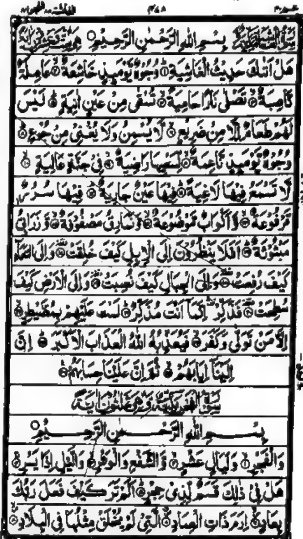 بِسْمِ اللهِ الرَّحْمٰنِ الرَّحِيْمِ
هَلْ اَتٰىكَ حَدِيْثُ الْغَاشِيَةِ وُجُوْهٌ يَّوْمَىِٕذٍ خَاشِعَةٌ عَامِلَةٌ
نَّاصِبَةٌ تَصْلٰى نَارًا حَامِيَةً تُسْقٰى مِنْ عَيْنٍ اٰنِيَةٍ لَيْسَ
لَهُمْ طَعَامٌ اِلَّا مِنْ ضَرِيْعٍ لَّا يُسْمِنُ وَلَا يُغْنِيْ مِنْ جُوْعٍ
وُجُوْهٌ يَّوْمَىِٕذٍ نَّاعِمَةٌ لِّسَعْيِهَا رَاضِيَةٌ فِيْ جَنَّةٍ عَالِيَةٍ
لَّا تَسْمَعُ فِيْهَا لَاغِيَةً فِيْهَا عَيْنٌ جَارِيَةٌ فِيْهَا سُرُرٌ
مَّرْفُوْعَةٌ وَّاَكْوَابٌ مَّوْضُوْعَةٌ وَّنَمَارِقُ مَصْفُوْفَةٌ وَّزَرَابِيُّ
مَبْثُوْثَةٌ اَفَلَا يَنْظُرُوْنَ اِلَى الْاِبِلِ كَيْفَ خُلِقَتْ وَاِلَى السَّمَآءِ
كَيْفَ رُفِعَتْ وَاِلَى الْجِبَالِ كَيْفَ نُصِبَتْ وَاِلَى الْاَرْضِ كَيْفَ
سُطِحَتْ فَذَكِّرْ اِنَّمَآ اَنْتَ مُذَكِّرٌ لَسْتَ عَلَيْهِمْ بِمُصَۜيْطِرٍ
اِلَّا مَنْ تَوَلّٰى وَكَفَرَ فَيُعَذِّبُهُ اللهُ الْعَذَابَ الْاَكْبَرَ اِنَّ
اِلَيْنَآ اِيَابَهُمْ ثُمَّ اِنَّ عَلَيْنَا حِسَابَهُمْ
بِسْمِ اللهِ الرَّحْمٰنِ الرَّحِيْمِ
وَالْفَجْرِ وَلَيَالٍ عَشْرٍ وَّالشَّفْعِ وَالْوَتْرِ وَالَّيْلِ اِذَا يَسْرِ
هَلْ فِيْ ذٰلِكَ قَسَمٌ لِّذِيْ حِجْرٍ اَلَمْ تَرَ كَيْفَ فَعَلَ رَبُّكَ
بِعَادٍ اِرَمَ ذَاتِ الْعِمَادِ الَّتِيْ لَمْ يُخْلَقْ مِثْلُهَا فِي الْبِلَادِ